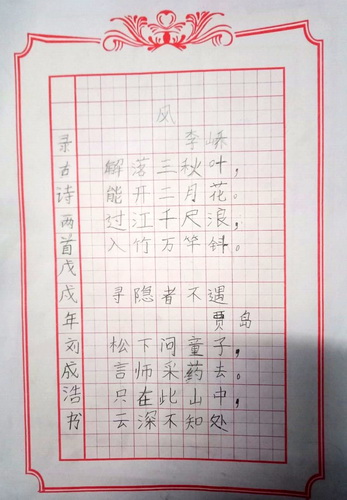 风
李峤
解落三秋叶，
能开二月花。
过江千尺浪，
入竹万竿斜。
寻隐者不遇
贾岛
松下问童子，
言师采药去。
只在此山中，
云深不知处
录古诗两首戊戌年刘成浩书